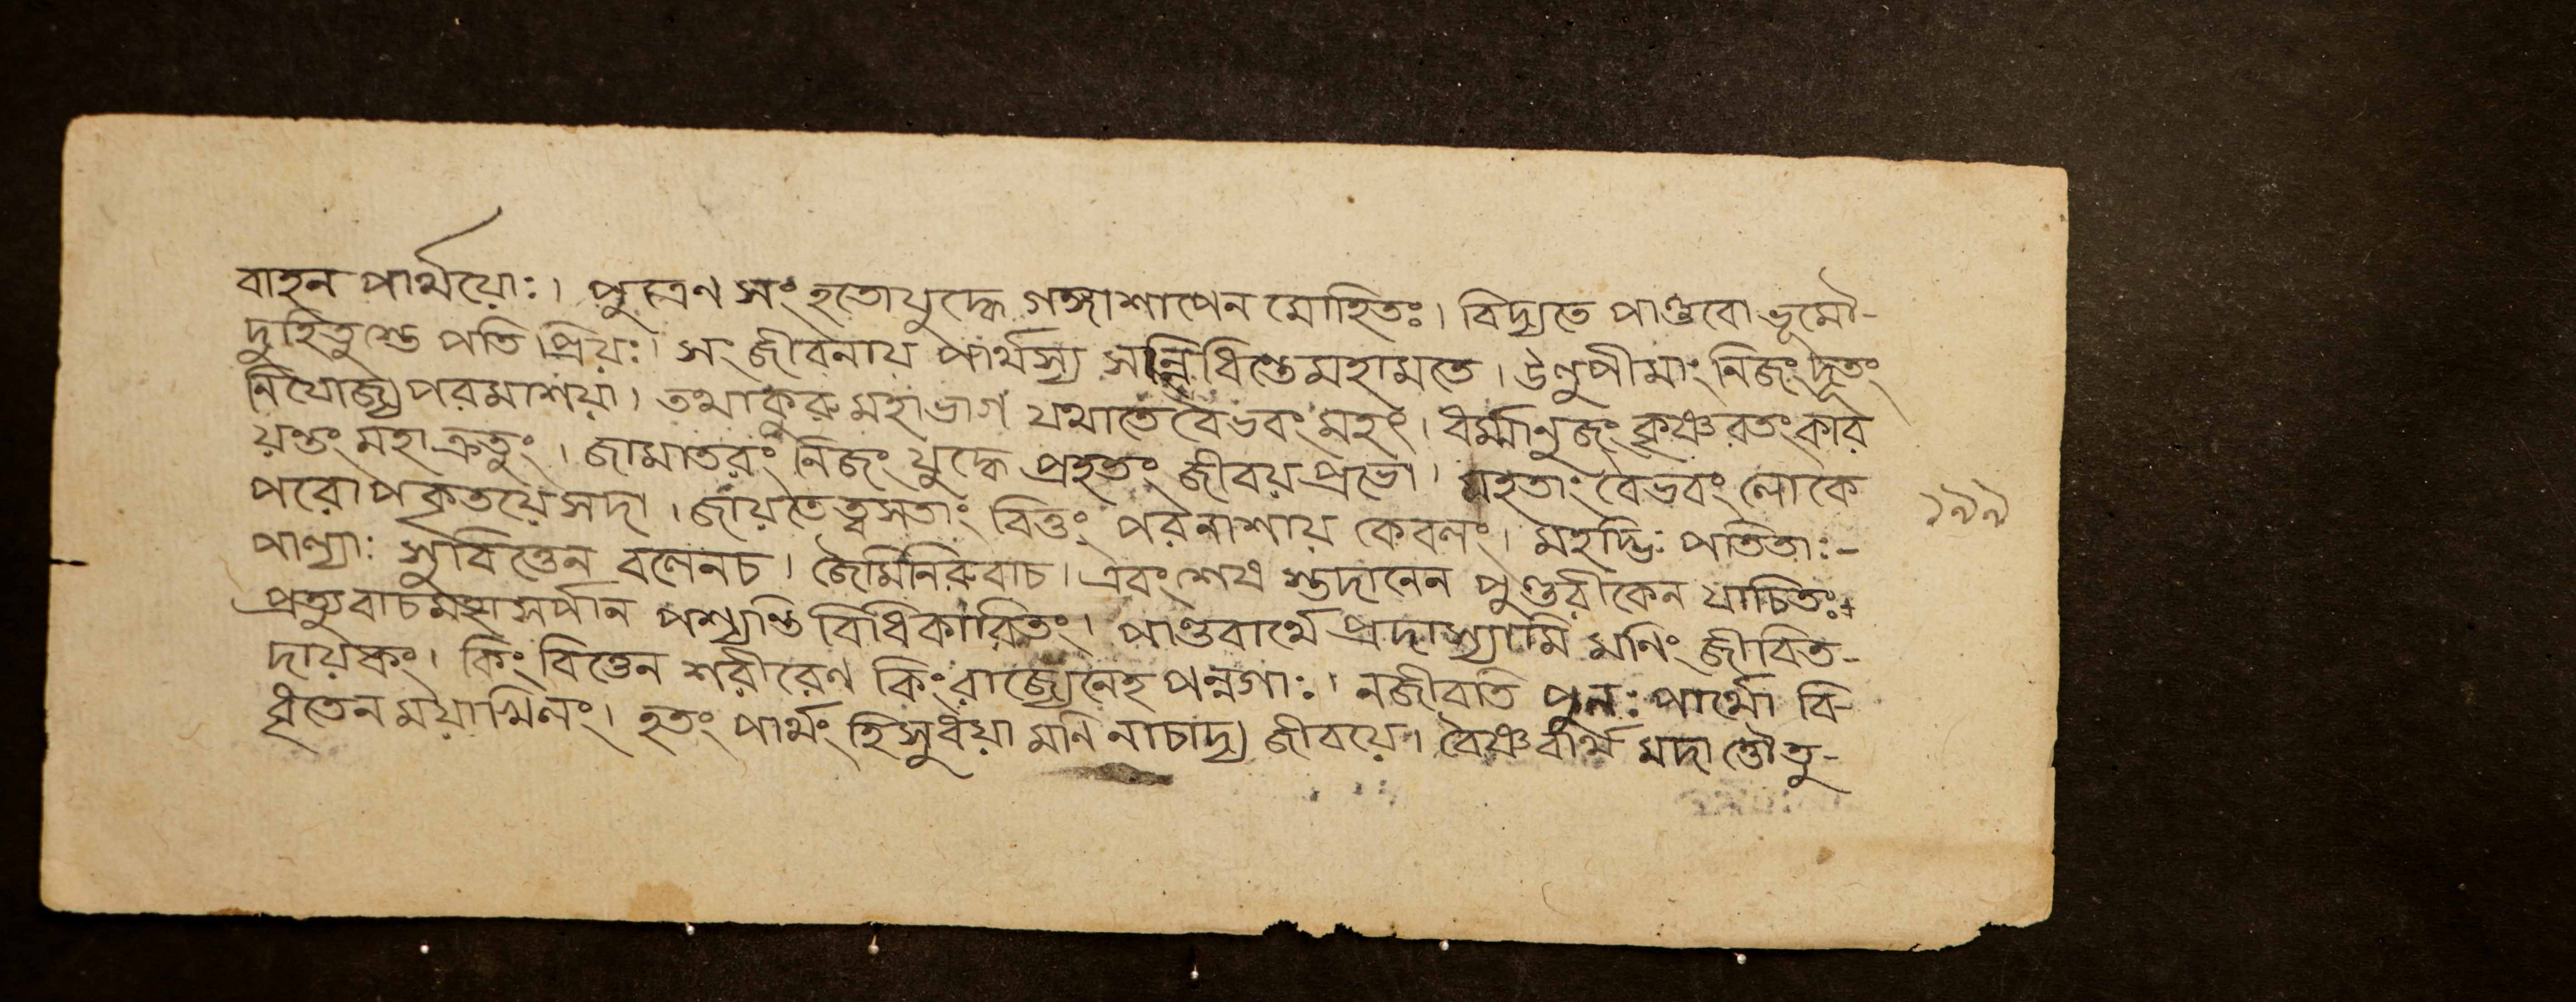 বাহন পার্থয়োঃ। পুত্রেণ সং হতোযুদ্ধে গঙ্গাশাপেন মোহিতঃ। বিদ্যতে পাণ্ডবো ভূমৌ-
দুহিতুস্তে পতি প্রিয়ঃ। সং জীবনায় পার্থস্য সন্নিধিস্তে মহামতে। উলুপীমাং নিজং দূতং
নিযোজ্য পরমাশয়া। তথাকুরু মহাভাগ যথাতে বৈভবং মহৎ। ধর্ম্মানুজং কৃষ্ণরতং কার
য়ন্তং মহাক্রতুং। জামাতরং নিজং যুদ্ধে প্রহতং জীবয়প্রভো। মহতাং বৈভবং লোকে
পরোপকৃতয়ে সদা। জায়তেত্বসতাং বিত্তং পরনাশায় কেবলং। মহদ্ভিঃ পতিতাঃ-
পাল্যাঃ সুবিত্তেন বলেনচ। জৈমিনিরুবাচ। এবং শেষ স্তদানেন পুণ্ডরীকেন যাচিতঃ+
প্রত্যুবাচমহাসর্পান পশ্যন্তি বিধিকারিতং। পাণ্ডবার্থে প্রদাস্যামি মনিং জীবিত-
দায়কং। কিং বিত্তেন শরীরেণ কিংরাজ্যেনেহ পন্নগাঃ। নজীবতি পুনঃ পার্থো বি-
ধৃতেন ময়াখিলং। হতং পার্থং হিসুধয়া মনি নাচাদ্য জীবয়ে। বৈষ্ণবার্থ মদা ত্তৌতু-
১৯৯